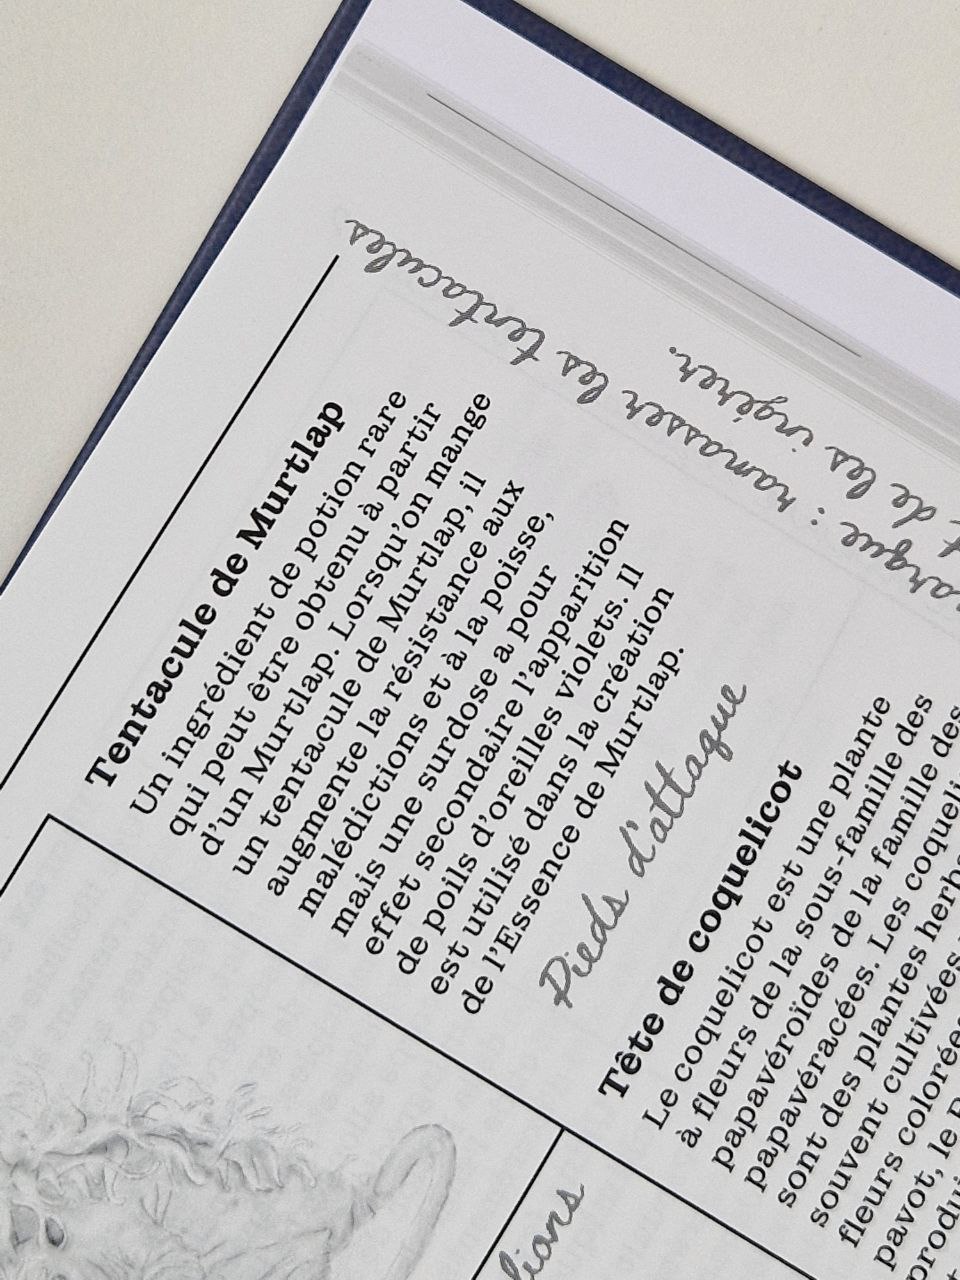 Tentacule de Murtlap
Un ingrédient de potion rare
qui peut être obtenu à partir
d'un Murtlap. Lorsqu'on mange
un tentacule de Murtlap, il
augmente la résistance aux
malédictions et à la poisse,
mais une surdose a pour
effet secondaire l'apparition
de poils d'oreilles violets. Il
est utilisé dans la création
de l'Essence de Murtlap.
Pieds d'attaque
Tête de coquelicot
Le coquelicot est une plante
à fleurs de la sous-famille des
papavéroïdes de la famille des
papavéracées. Les coqueli
sont des plantes herb
souvent cultivées
fleurs colorées
pavot, le
produi
arque : ramasser les tentacules
t de les ingérer.
lions